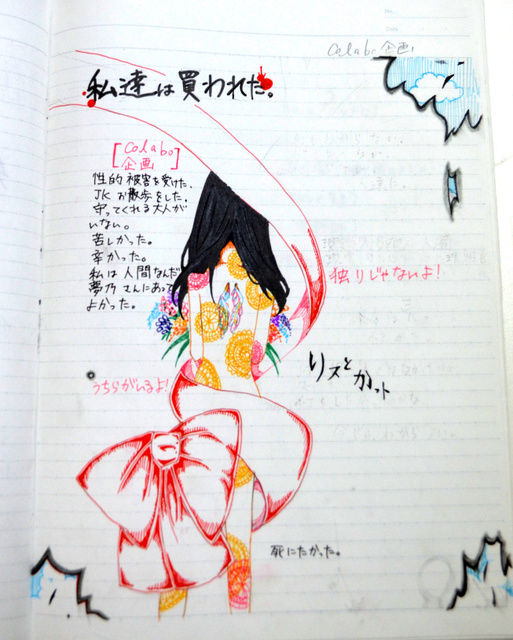 Colabo 企画
私達は買われた。
[Colabo
企画]
性的被害を受けた。
JKお散歩をした。
守ってくれる大人が
いない。
苦しかった。
辛かった。
私は人間なんだ
夢乃さんにあって
よかった。
独りじゃないよ!
リストカット
うちらがいるよ!
死にたかった。